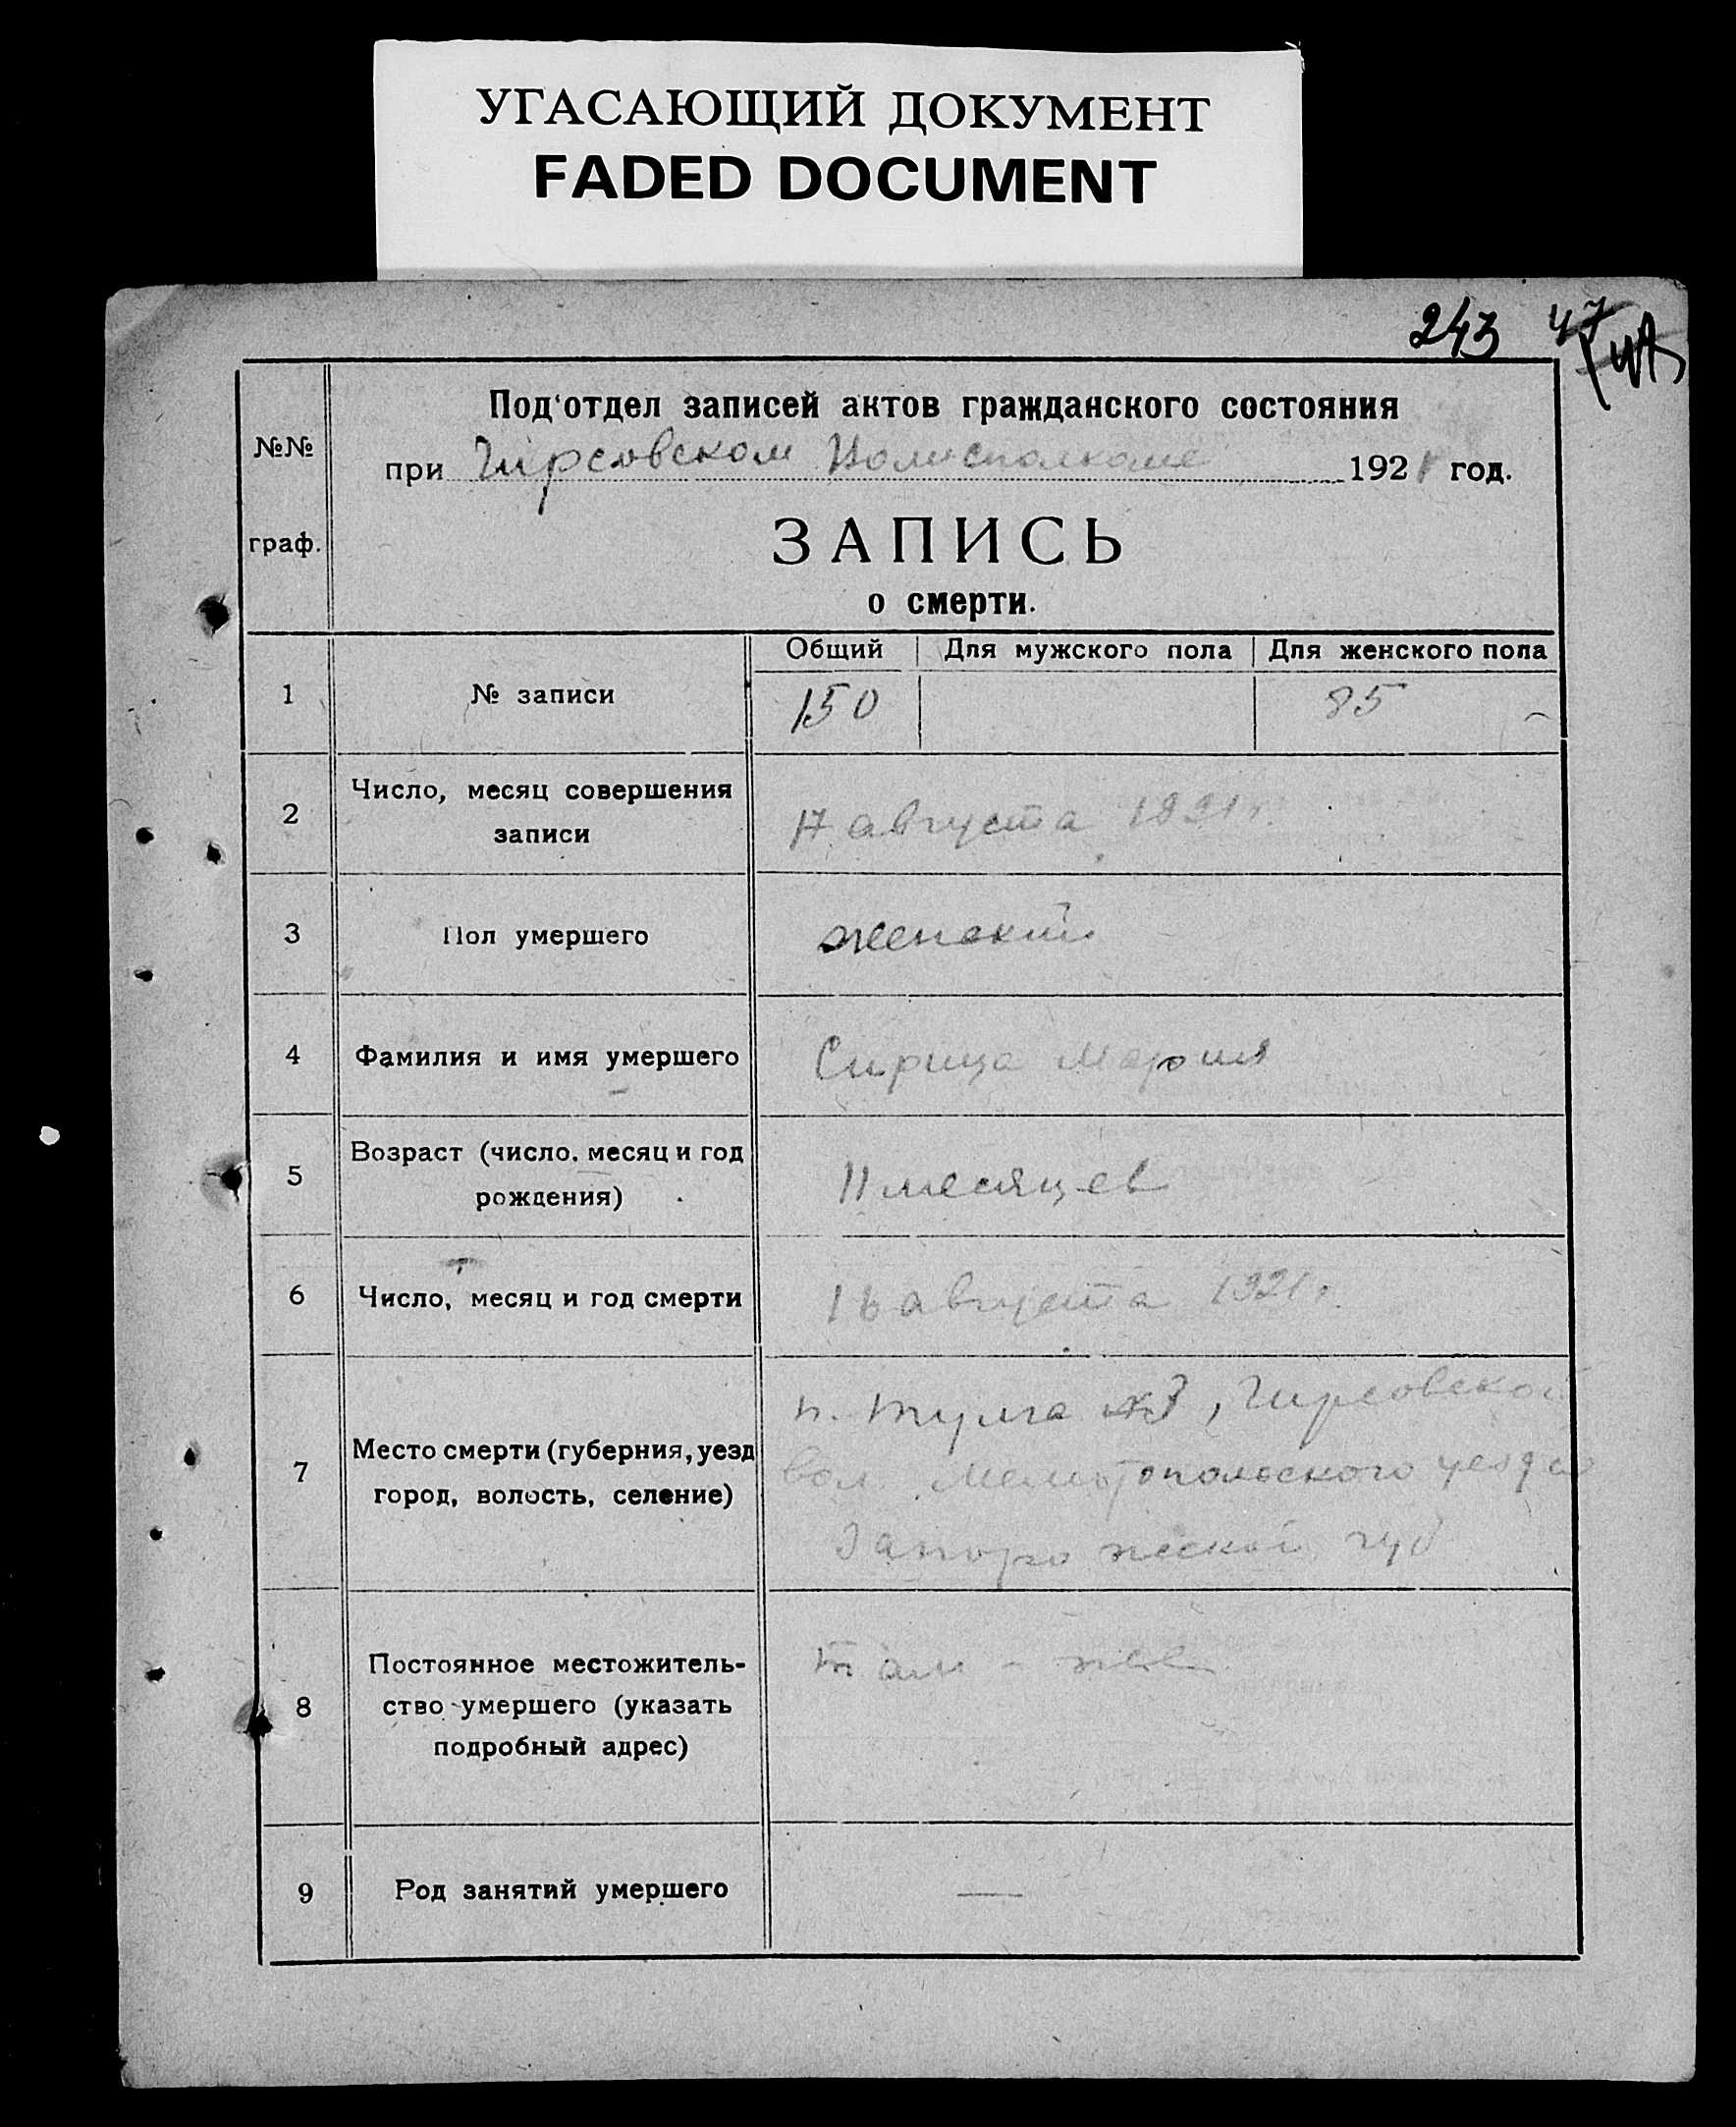 УГАСАЮЩИЙ ДОКУМЕНТ
FADED DOCUMENT
243 47
№№
граф.
Под'отдел записей актов гражданского состояния
при Гирсовском Волисполкоме 1921 год.
ЗАПИСЬ
о смерти.
Общий Для мужского пола Для женского пола
1 № записи 150 85
2 Число, месяц совершения
записи
17 августа 1921 г.
3 Пол умершего женский
4 Фамилия и имя умершего Сирица Мария
5 Возраст (число, месяц и год
рождения)
11 месяцев
6 Число, месяц и год смерти 16 августа 1921 г.
7 Место смерти (губерния, уезд
город, волость, селение)
п. №3, Гирсовской
вол. Мелитопольского уезда
Запорожской губ
8 Постоянное местожитель-
ство умершего (указать
подробный адрес)
там - же
9 Род занятий умершего —